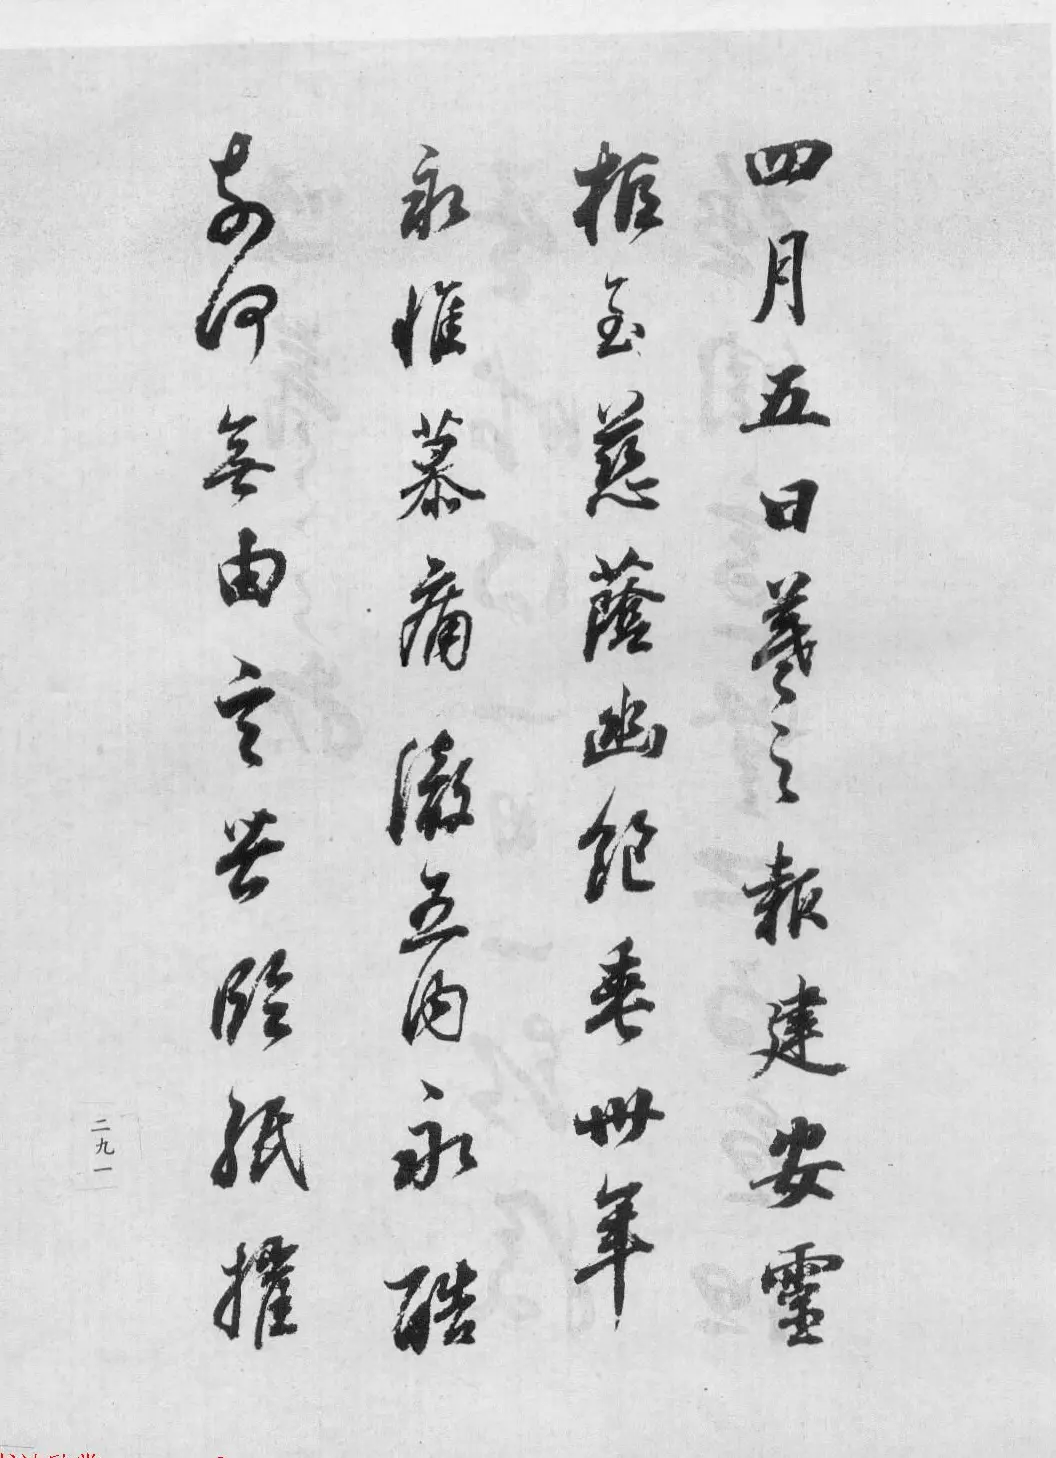 四月五日羲之報建安靈
柩至慈蔭幽絕垂卅年
永惟慕痛徹五内永酷
奈何無由言苦臨紙摧
二九一